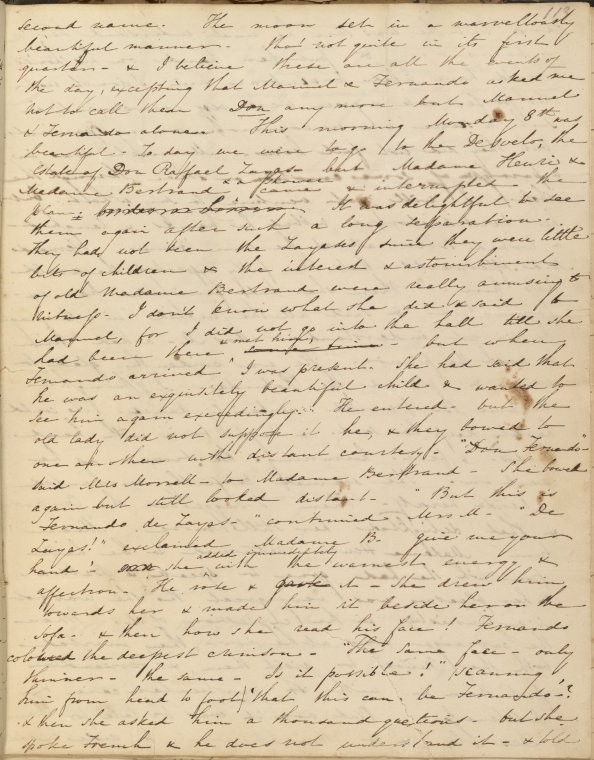 119
second name. The moon set in a marvellously
beautiful manner - tho' not quite in its first
quarter - & I believe these are all the events of
the day, excepting that Manuel & Fernando asked me
not to call them Don any more but Manuel
& Fernando alone. This morning Monday 8th was
beautiful. To day we were to go to the Desvelo, the
Estate of Don Raffael Zayas - but Madame Henri &
Madame Bertrand came & interrupted the
plan - It was delightful to see
them again after such a long separation.
They had not seen the Zayases since they were little
bits of children & the interest & astonishment
of old Madame Bertrand were really amusing to
witness. I don't know what she did & said to
Manuel, for I did not go into the hall till she
had been there & met him, - but when
Fernando arrived I was present. She had said that
he was an exquisitely beautiful child & wanted to
see him again exceedingly. He entered - but the
old lady did not suppose it he, & they bowed to
one another with distant courtesy. "Don Fernando" -
said Mrs Morrell - to Madame Bertrand - She bowed
again but still looked distant - "But this is
Fernando de Zayas - " continued Mrs. M - "De
Zayas!" exclaimed Madame B - give me your
hand! she added immediately with the warmest energy &
affection - He rose & gave it - She drew him
towards her & made him sit beside her on the
Sofa - & then how she read his face! Fernando
colored the deepest crimson - "The same face - only
thinner - the same - Is it possible!" (scanning
him from head to foot) "that this can be Fernando!"
& then she asked him a thousand questions - but she
spoke French & he does not understand it - & told